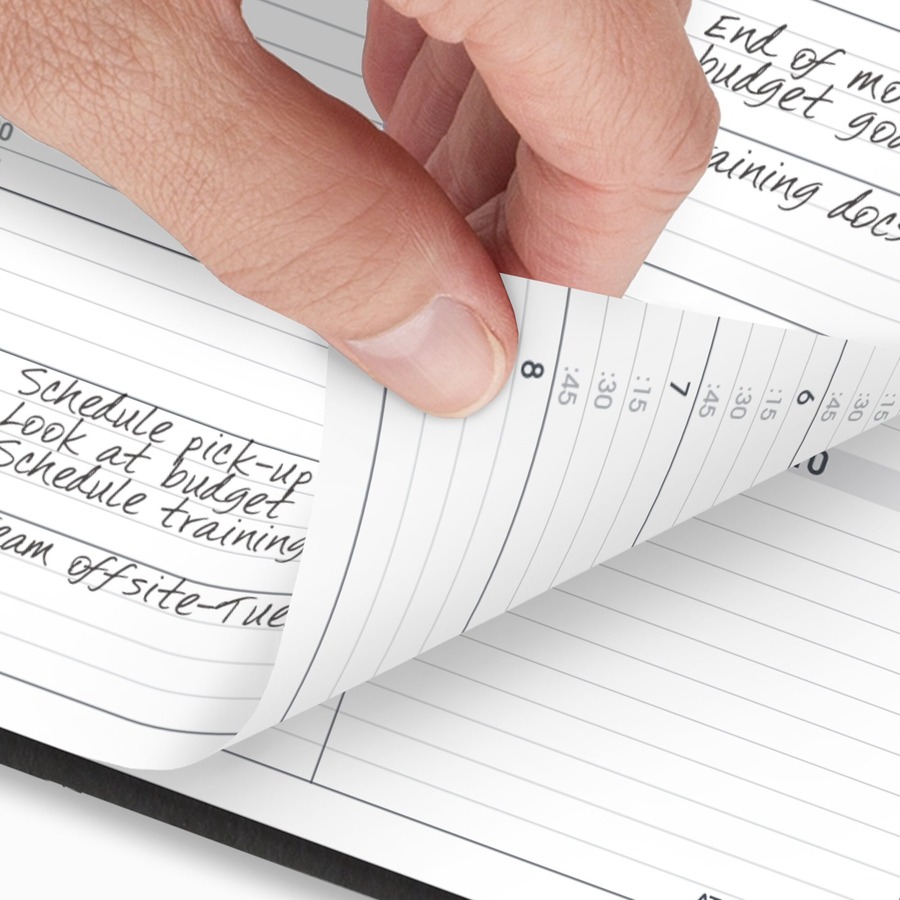 End of
budget
docs
Schedule pick-up
Look at budget
Schedule training
offsite-Tue
8
:45
:30
:15
7
:45
:30
:15
6
:45
:30
:15